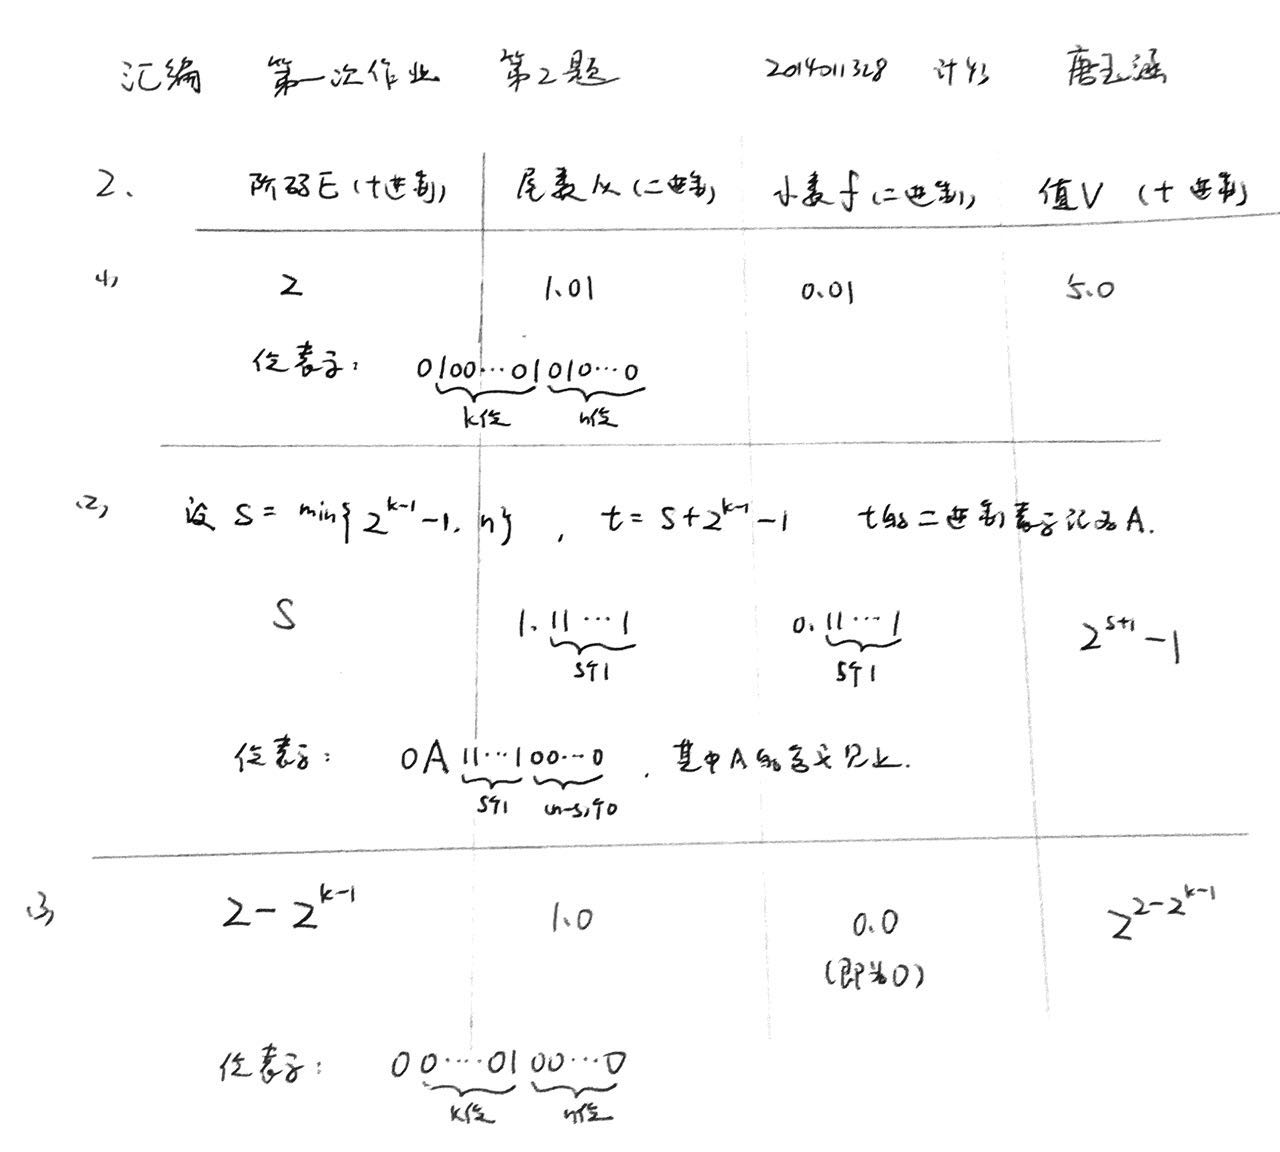 汇编 第一次作业 第2题 2014011328 计45 唐玉涵
2. 阶码E(十进制) 尾数M(二进制) 小数f(二进制) 值V (十进制)
(1) 2 1.01 0.01 5.0
位表示: 0100···01010···0
k位 n位
(2) 设 S = min{2^{k-1}-1, n} , t = S+2^{k-1}-1 t的二进制表示记为A.
S 1.11···1 0.11···1 2^{s+1}-1
S个1 S个1
位表示: 0A11···100···0 , 其中A的含义见上.
S个1 (n-s)个0
(3) 2-2^{k-1} 1.0 0.0 2^{2-2^{k-1}}
(即为0)
位表示: 00····0100···0
k位 n位